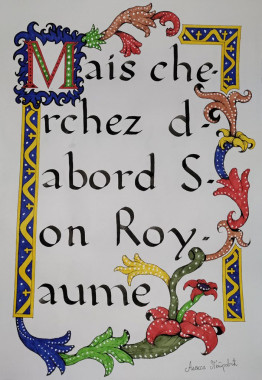 Mais che-
rchez d-
abord S-
on Roy-
aume